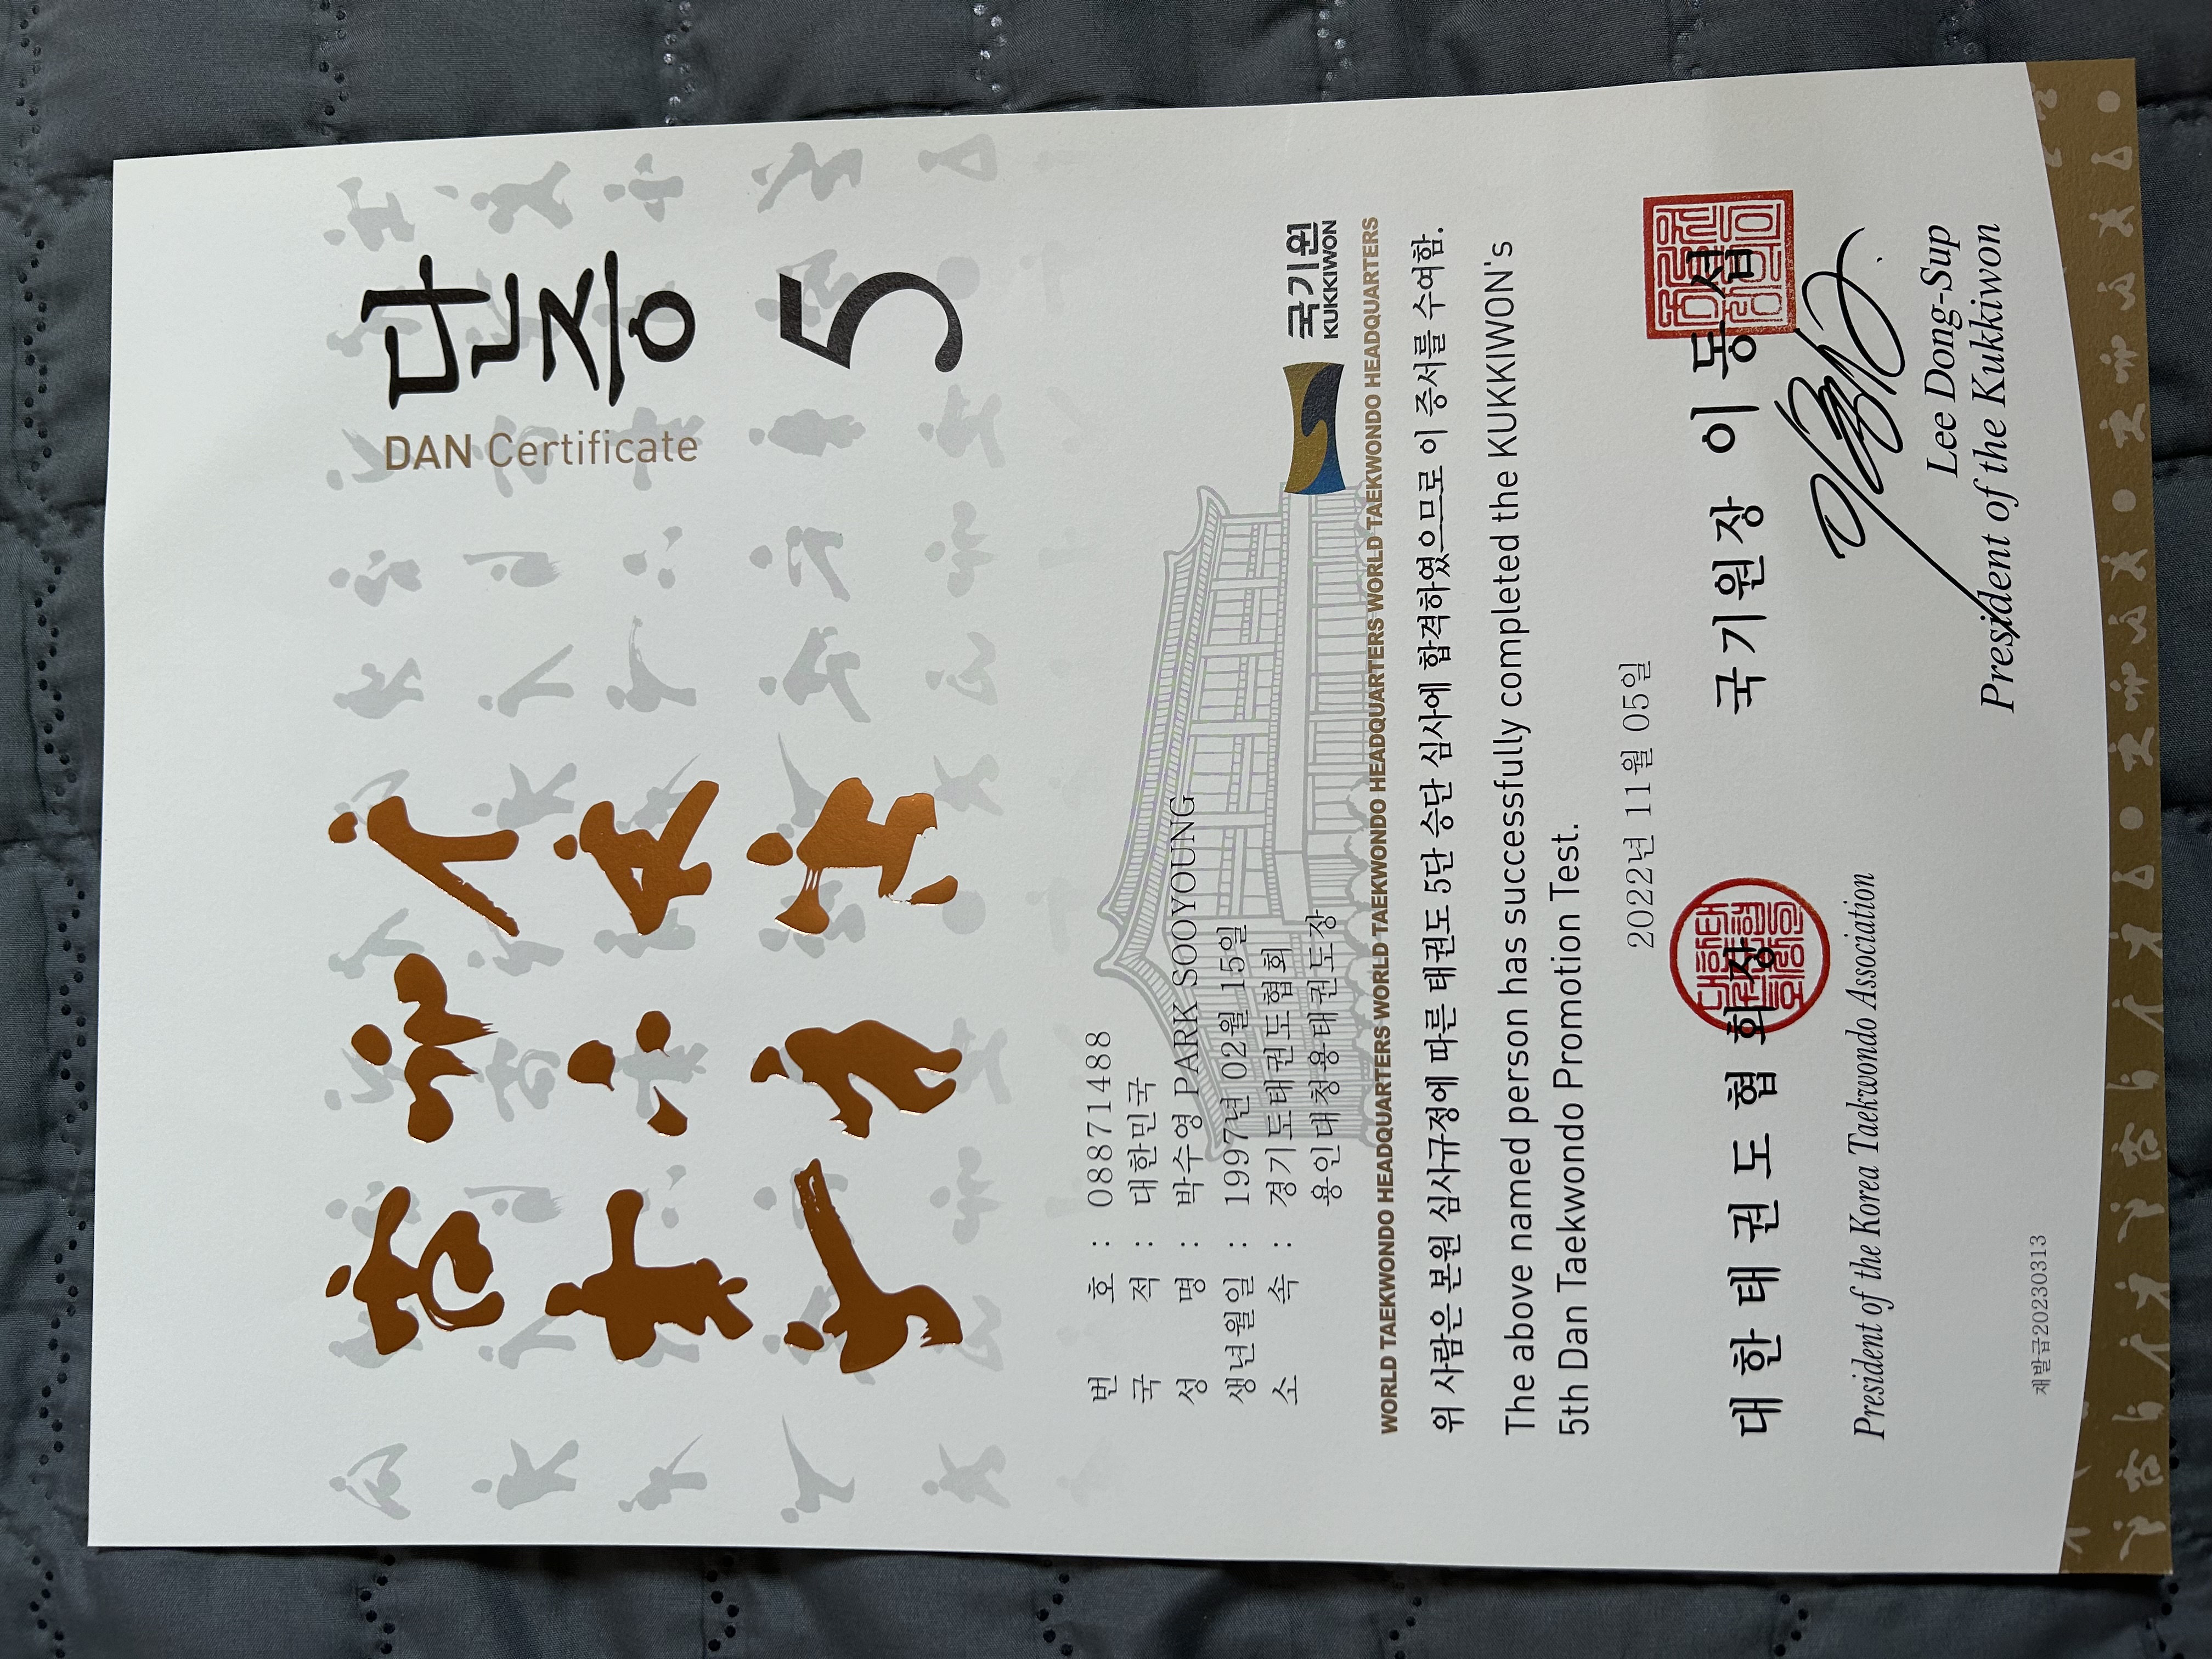 단증
DAN Certificate
5
번 호 : 08871488
국 적 : 대한민국
성 명 : 박수영 PARK SOOYOUNG
생년월일 : 1997년 02월 15일
소 속 : 경기도태권도협회
용인대청용태권도장
국기원
KUKKIWON
WORLD TAEKWONDO HEADQUARTERS WORLD TAEKWONDO HEADQUARTERS WORLD TAEKWONDO HEADQUARTERS WORLD TAEKWONDO HEADQUARTERS
위 사람은 본원 심사규정에 따른 태권도 5단 승단 심사에 합격하였으므로 이 증서를 수여함.
The above named person has successfully completed the KUKKIWON's
5th Dan Taekwondo Promotion Test.
2022년 11월 05일
대한태권도협회장
President of the Korea Taekwondo Association
국기원장 이동섭
Lee Dong-Sup
President of the Kukkiwon
재발급20230313